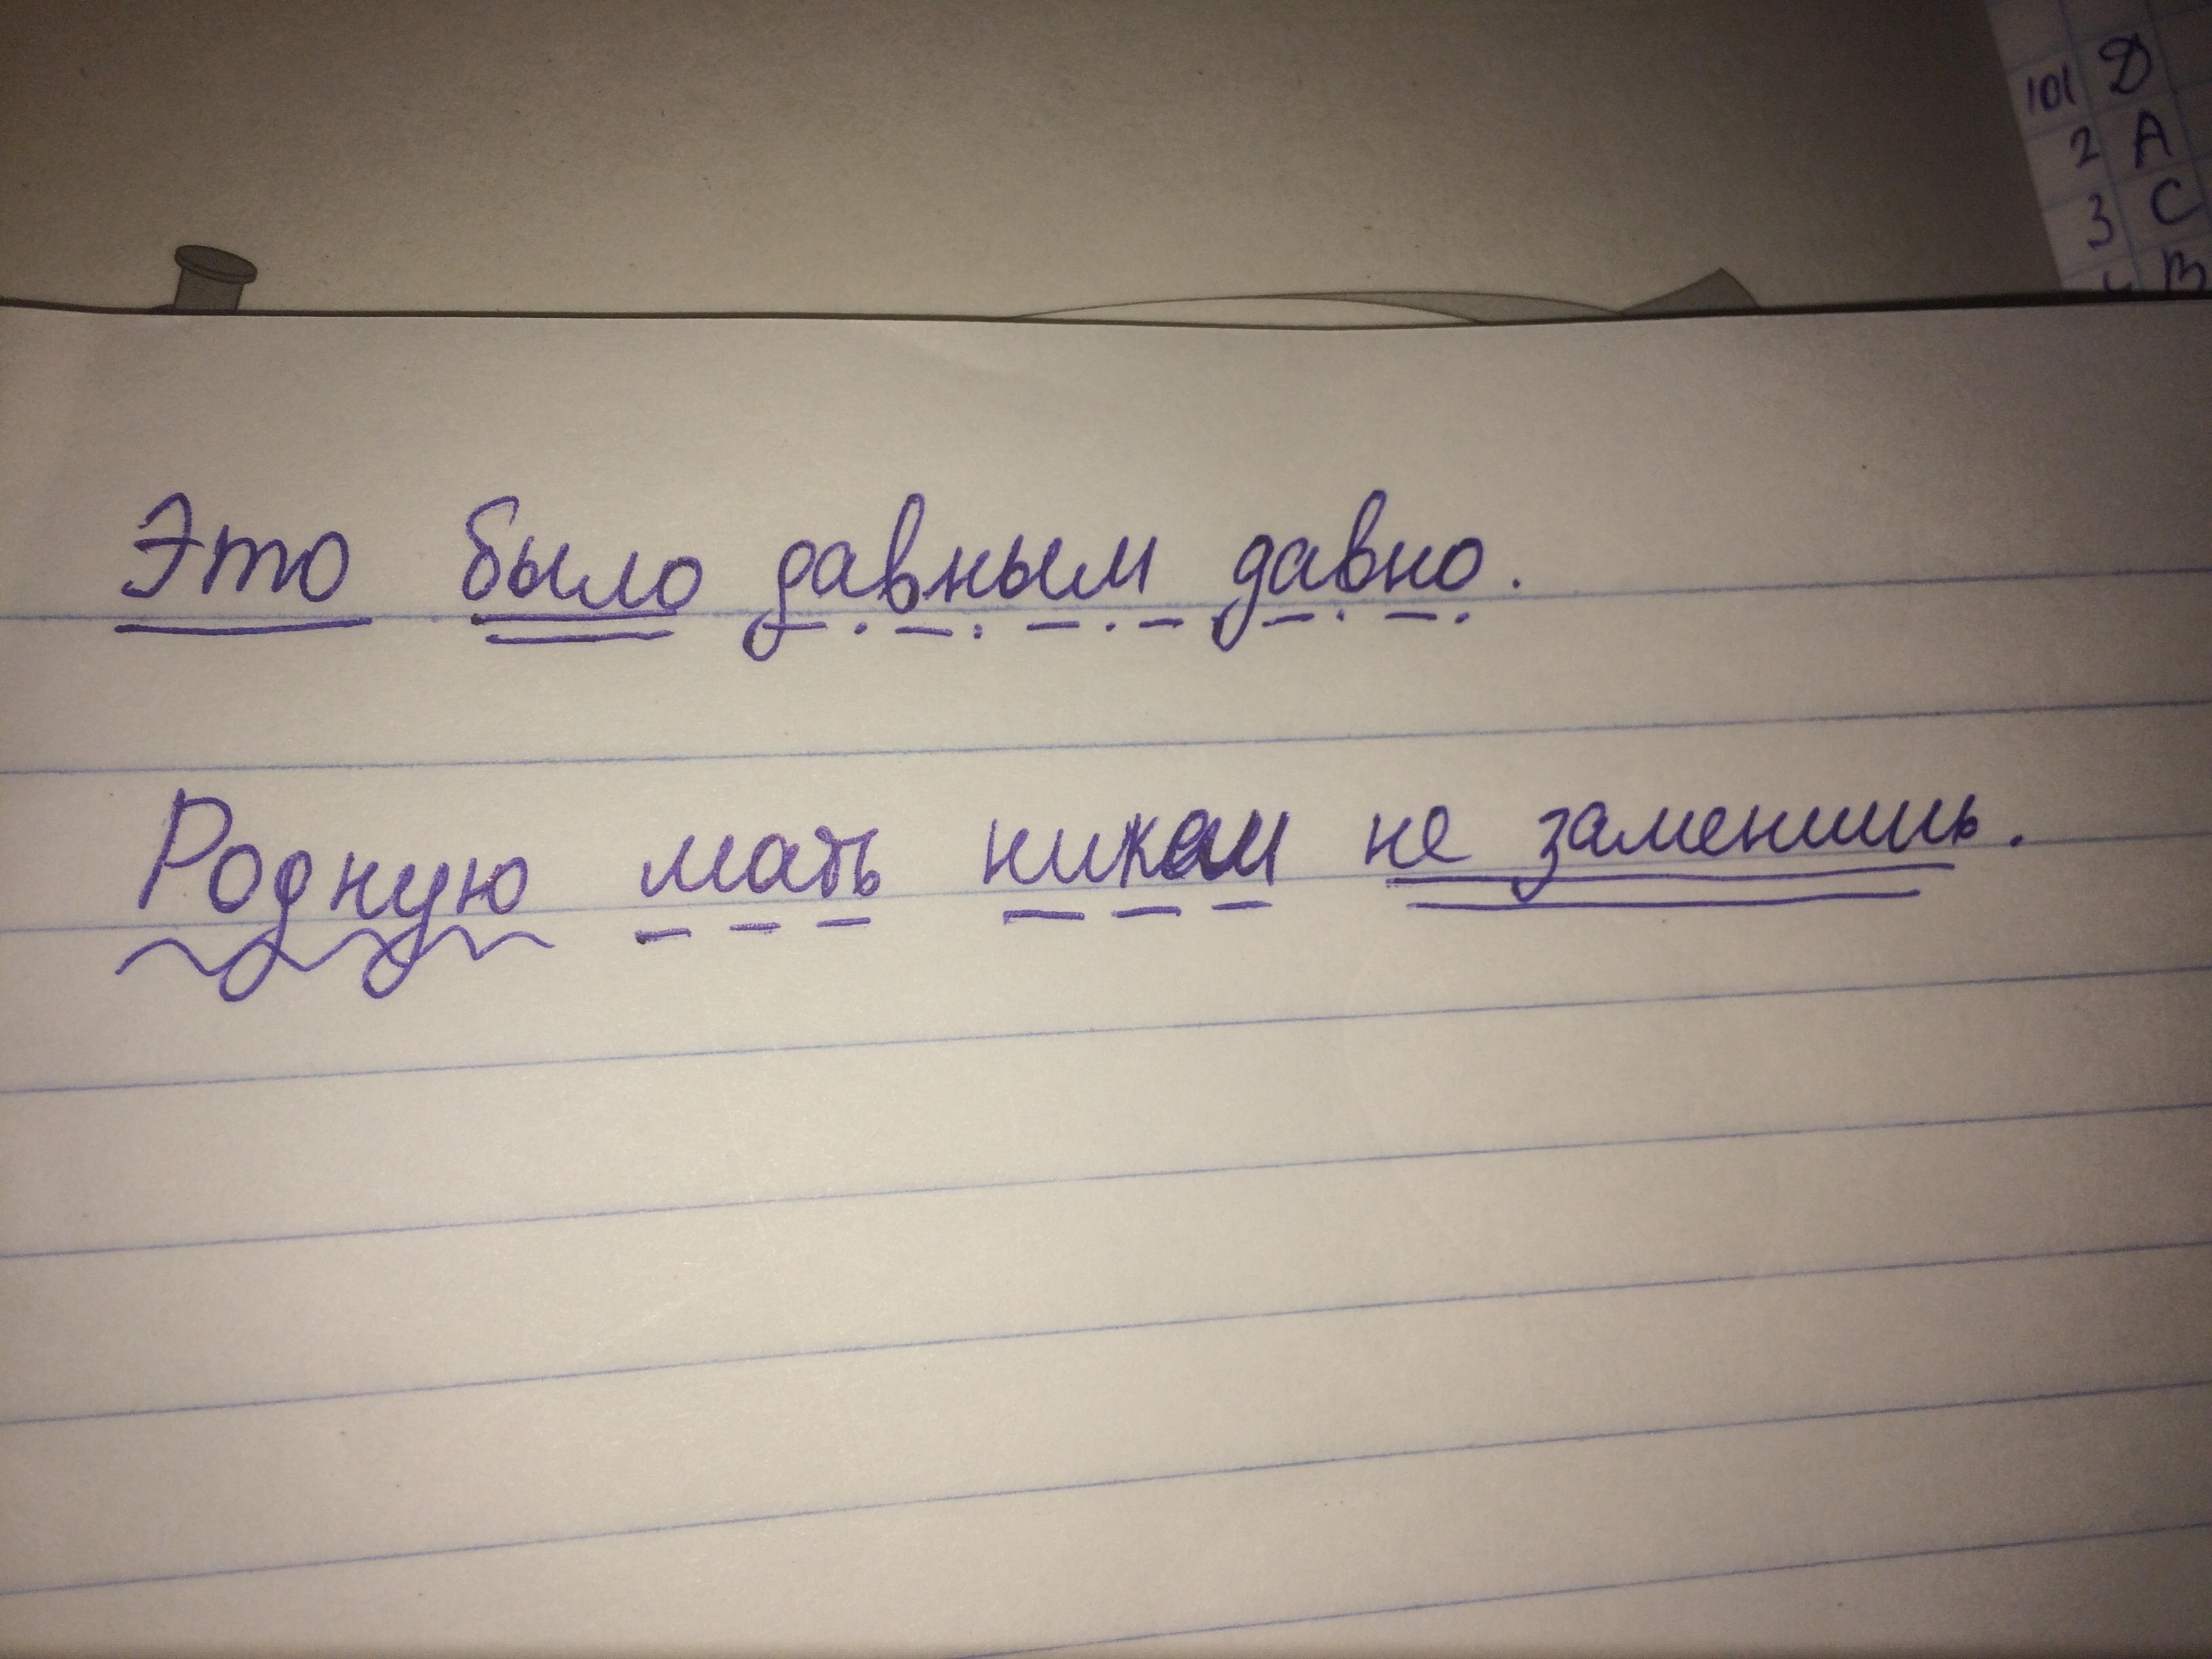 101 D
2 A
3 C
B
Это было давным давно.
Родную мать никем не заменишь.